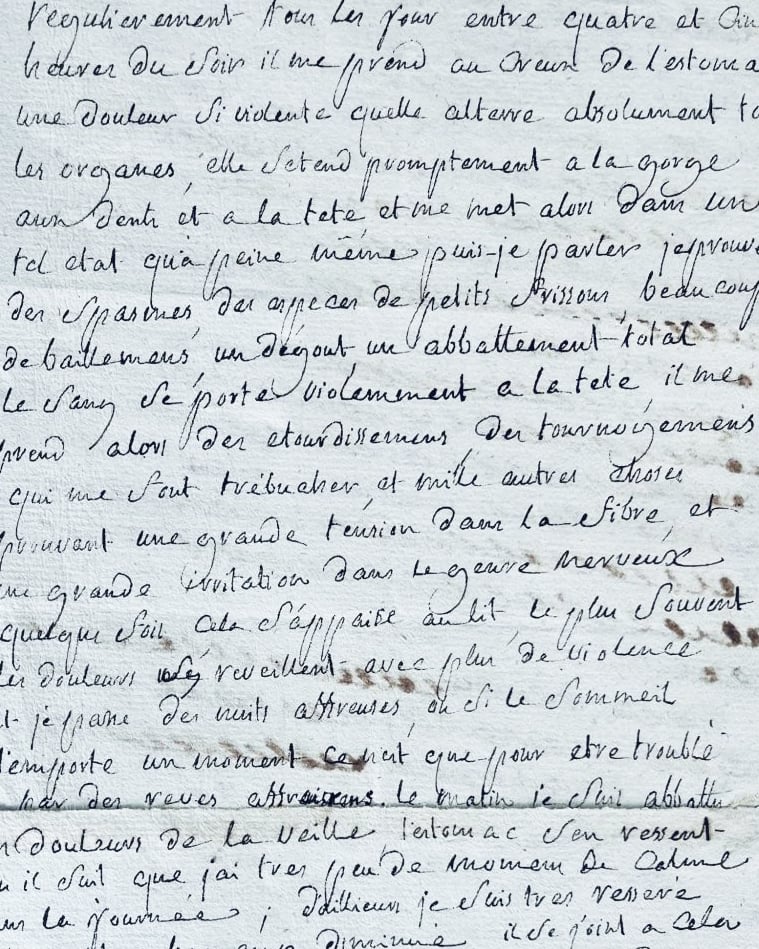 regulierement tous les jour entre quatre et
heures du soir il me prend au creux de l'estoma
une douleur si violente quelle alterre absolument
les organes, elle setend promptement a la gorge
aux dents et a la tete et me met alors dans un
tel etat qu'a peine même puis-je parler jeprouve
des spasmes, des especes de petits frissons, beaucoup
de baillemens, un dégout, un abbattement total
le sang se porte violemment a la tete, il me
prend alors des etourdissemens, des tournoyemens
qui me font trébucher, et mille autres choses
prouvant une grande tension dans la fibre, et
une grande irritation dans le genre nerveux
quelque fois cela s'appaise au lit le plus souvent
les douleurs reveillent avec plus de violence
et je passe des nuits affreuses, ou si le sommeil
l'emporte un moment ce n'est que pour etre troublé
par des reves le matin je suis abbattu
douleurs de la veille, l'estomac s'en ressent
il suit que j'ai tres peu de momens de calme
la journée ; d'aillieurs je suis tres resseré
diminué il se joint a cela